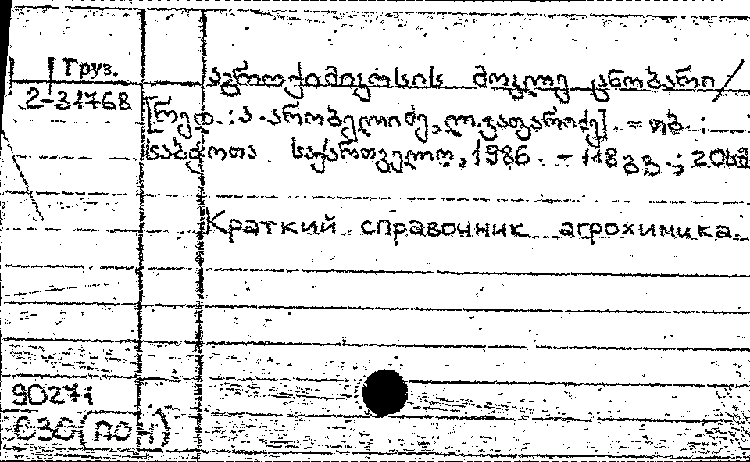 Груз.
2-31768
აგროქიმიკოსის მოკლე ცნობარი/
[რედ.: ა. არობელიძე, ლ. კაფაროძე]. – თბ.:
საბჭოთა საქართველო, 1986. – 118 გვ.; 20სმ
Краткий справочник агрохимика.
90271
030(ПОН)